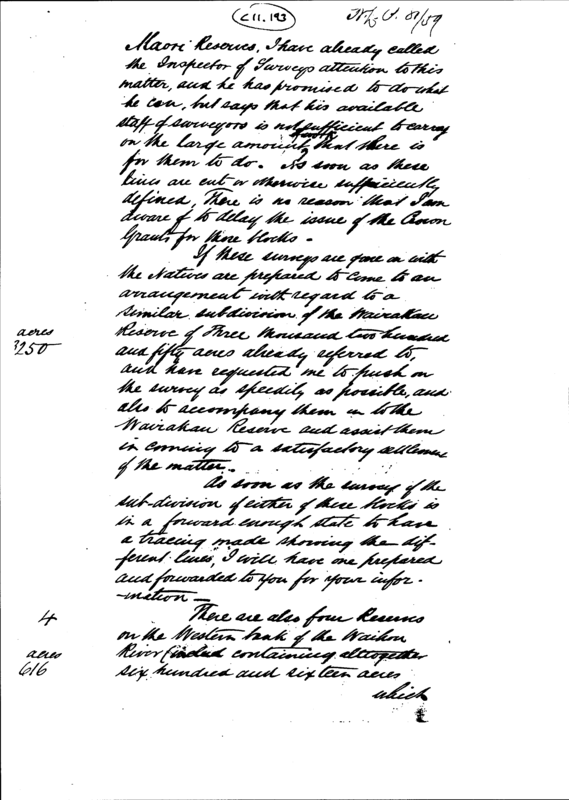 C11.193
81/59
Maori Reserves, I have already called
the Inspector of Surveys attention to this
matter, and he has promised to do what
he can, but says that his available
staff of surveyors is not sufficient to carry
on the large amount that there is
for them to do. As soon as these
lines are cut or otherwise sufficiently
defined, There is no reason that I am
aware of to delay the issue of the Crown
Grants for those blocks -
If these surveys are gone on with
the Natives are prepared to come to an
arrangement with regard to a
similar subdivision of the Wairakau
acres
3250
Reserve of Three thousand two hundred
and fifty acres already referred to,
and have requested me to push on
the survey as speedily as possible, and
also to accompany them on to the
Wairakau Reserve and assist them
in coming to a satisfactory settlement
of the matter. -
As soon as the survey of the
sub-division of either of these blocks is
in a forward enough state to have
a tracing made showing the dif-
ferent lines, I will have one prepared
and forwarded to you for your infor-
-mation -
4
There are also four Reserves
on the Western bank of the Waihou
acres
616
River (includ containing altogether
six hundred and sixteen acres
which